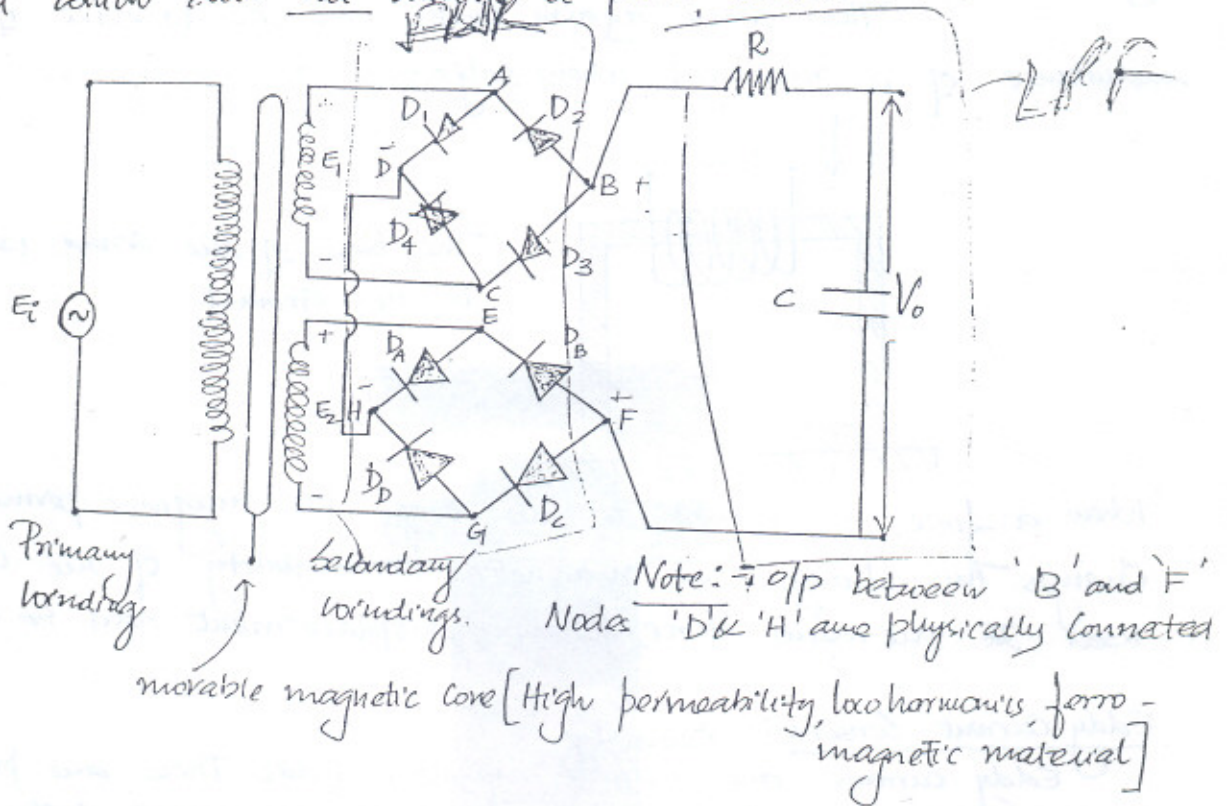 R
LPF
A
D1
D2
E1
D
B +
D4
D3
-
C
Ei
~
C
V0
E
+
DA
DB
-
+
E2
H
F
DD
DC
-
G
Primary
winding
Secondary
windings.
Note: → o/p between 'B' and 'F'
Nodes 'D' & 'H' are physically Connected
movable magnetic core [High permeability, low harmonics ferro-
magnetic material]